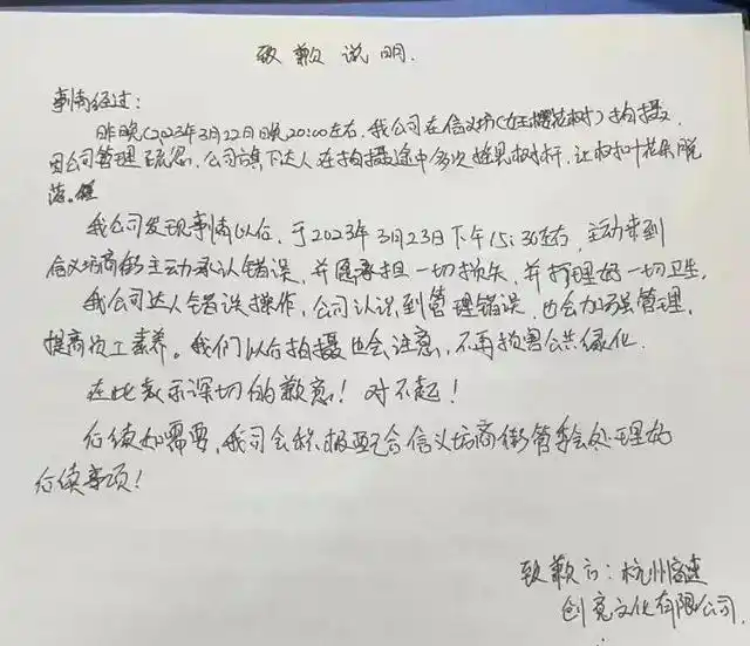 致歉说明.
事情经过:
昨晚(2023年3月22日晚20:00左右.我公司在信义坊(女王樱花树)拍摄.
因公司管理疏忽.公司旗下达人在拍摄途中多次摇晃树杆.让树叶花朵脱
落.
我公司发现事情以后.于2023年3月23日下午15:30左右,主动来到
信义坊商街主动承认错误,并愿承担一切损失,并打理好一切卫生.
我公司达人错误操作,公司认识到管理错误,也会加强管理,
提高员工素养。我们以后拍摄也会注意,不再损害公共绿化.
在此表示深切的歉意!对不起!
后续如需要,我司会积极配合信义坊商街管委会处理好
后续事项!
致歉方:杭州
创意文化有限公司.